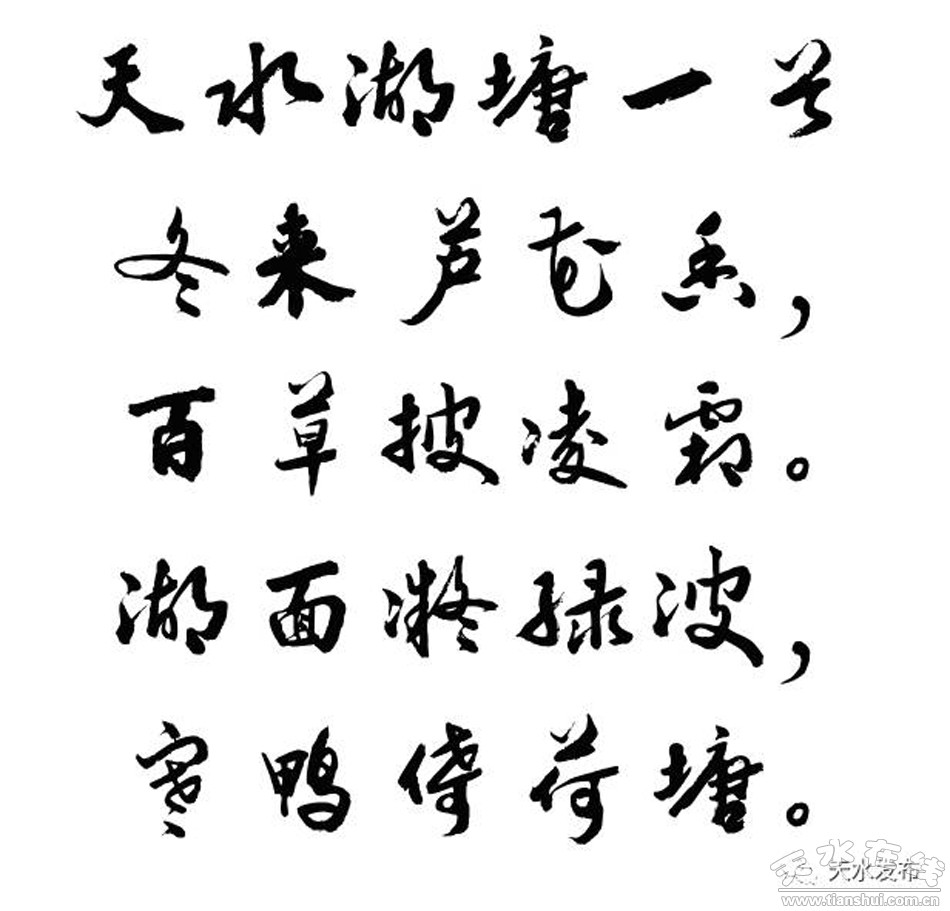 天水湖塘一首
冬来芦花香，
百草披凌霜。
湖面凝绿波，
寒鸭倚荷塘。
天水在线
天水发布
www.tianshui.com.cn